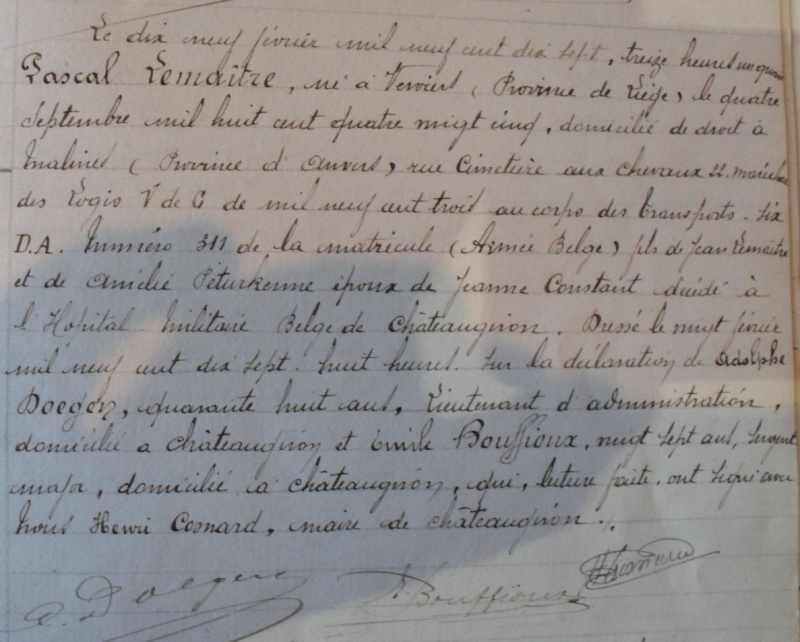 Le dix neuf février mil neuf cent dix sept, treize heures un quart
Pascal Lemaître, né à Verviers (Province de Liège) le quatre
Septembre mil huit cent quatre vingt cinq, domicilié de droit à
Malines (Province d'Anvers) rue Cimetière aux chevaux 22. maréchal
des Logis V de C de mil neuf cent trois au corps des transports. Six
D.A. Numéro 311 de la matricule (Armée Belge) fils de Jean Lemaître
et de Amélie Peturkenne époux de Jeanne Constant décédé à
l'Hopital Militaire Belge de Châteaugiron. Dressé le vingt février
mil neuf cent dix sept. huit heures. Sur la déclaration de Adolphe
Doegen, quarante huit ans, Lieutenant d'administration,
domicilié a châteaugiron et Emile Bouffioux, vingt sept ans, Sergent
major, domicilié à châteaugiron, qui, lecture faite, ont signé avec
Nous Henri Cosnard, maire de châteaugiron ./.
A. Doegen
Bouffioux
HCosnard